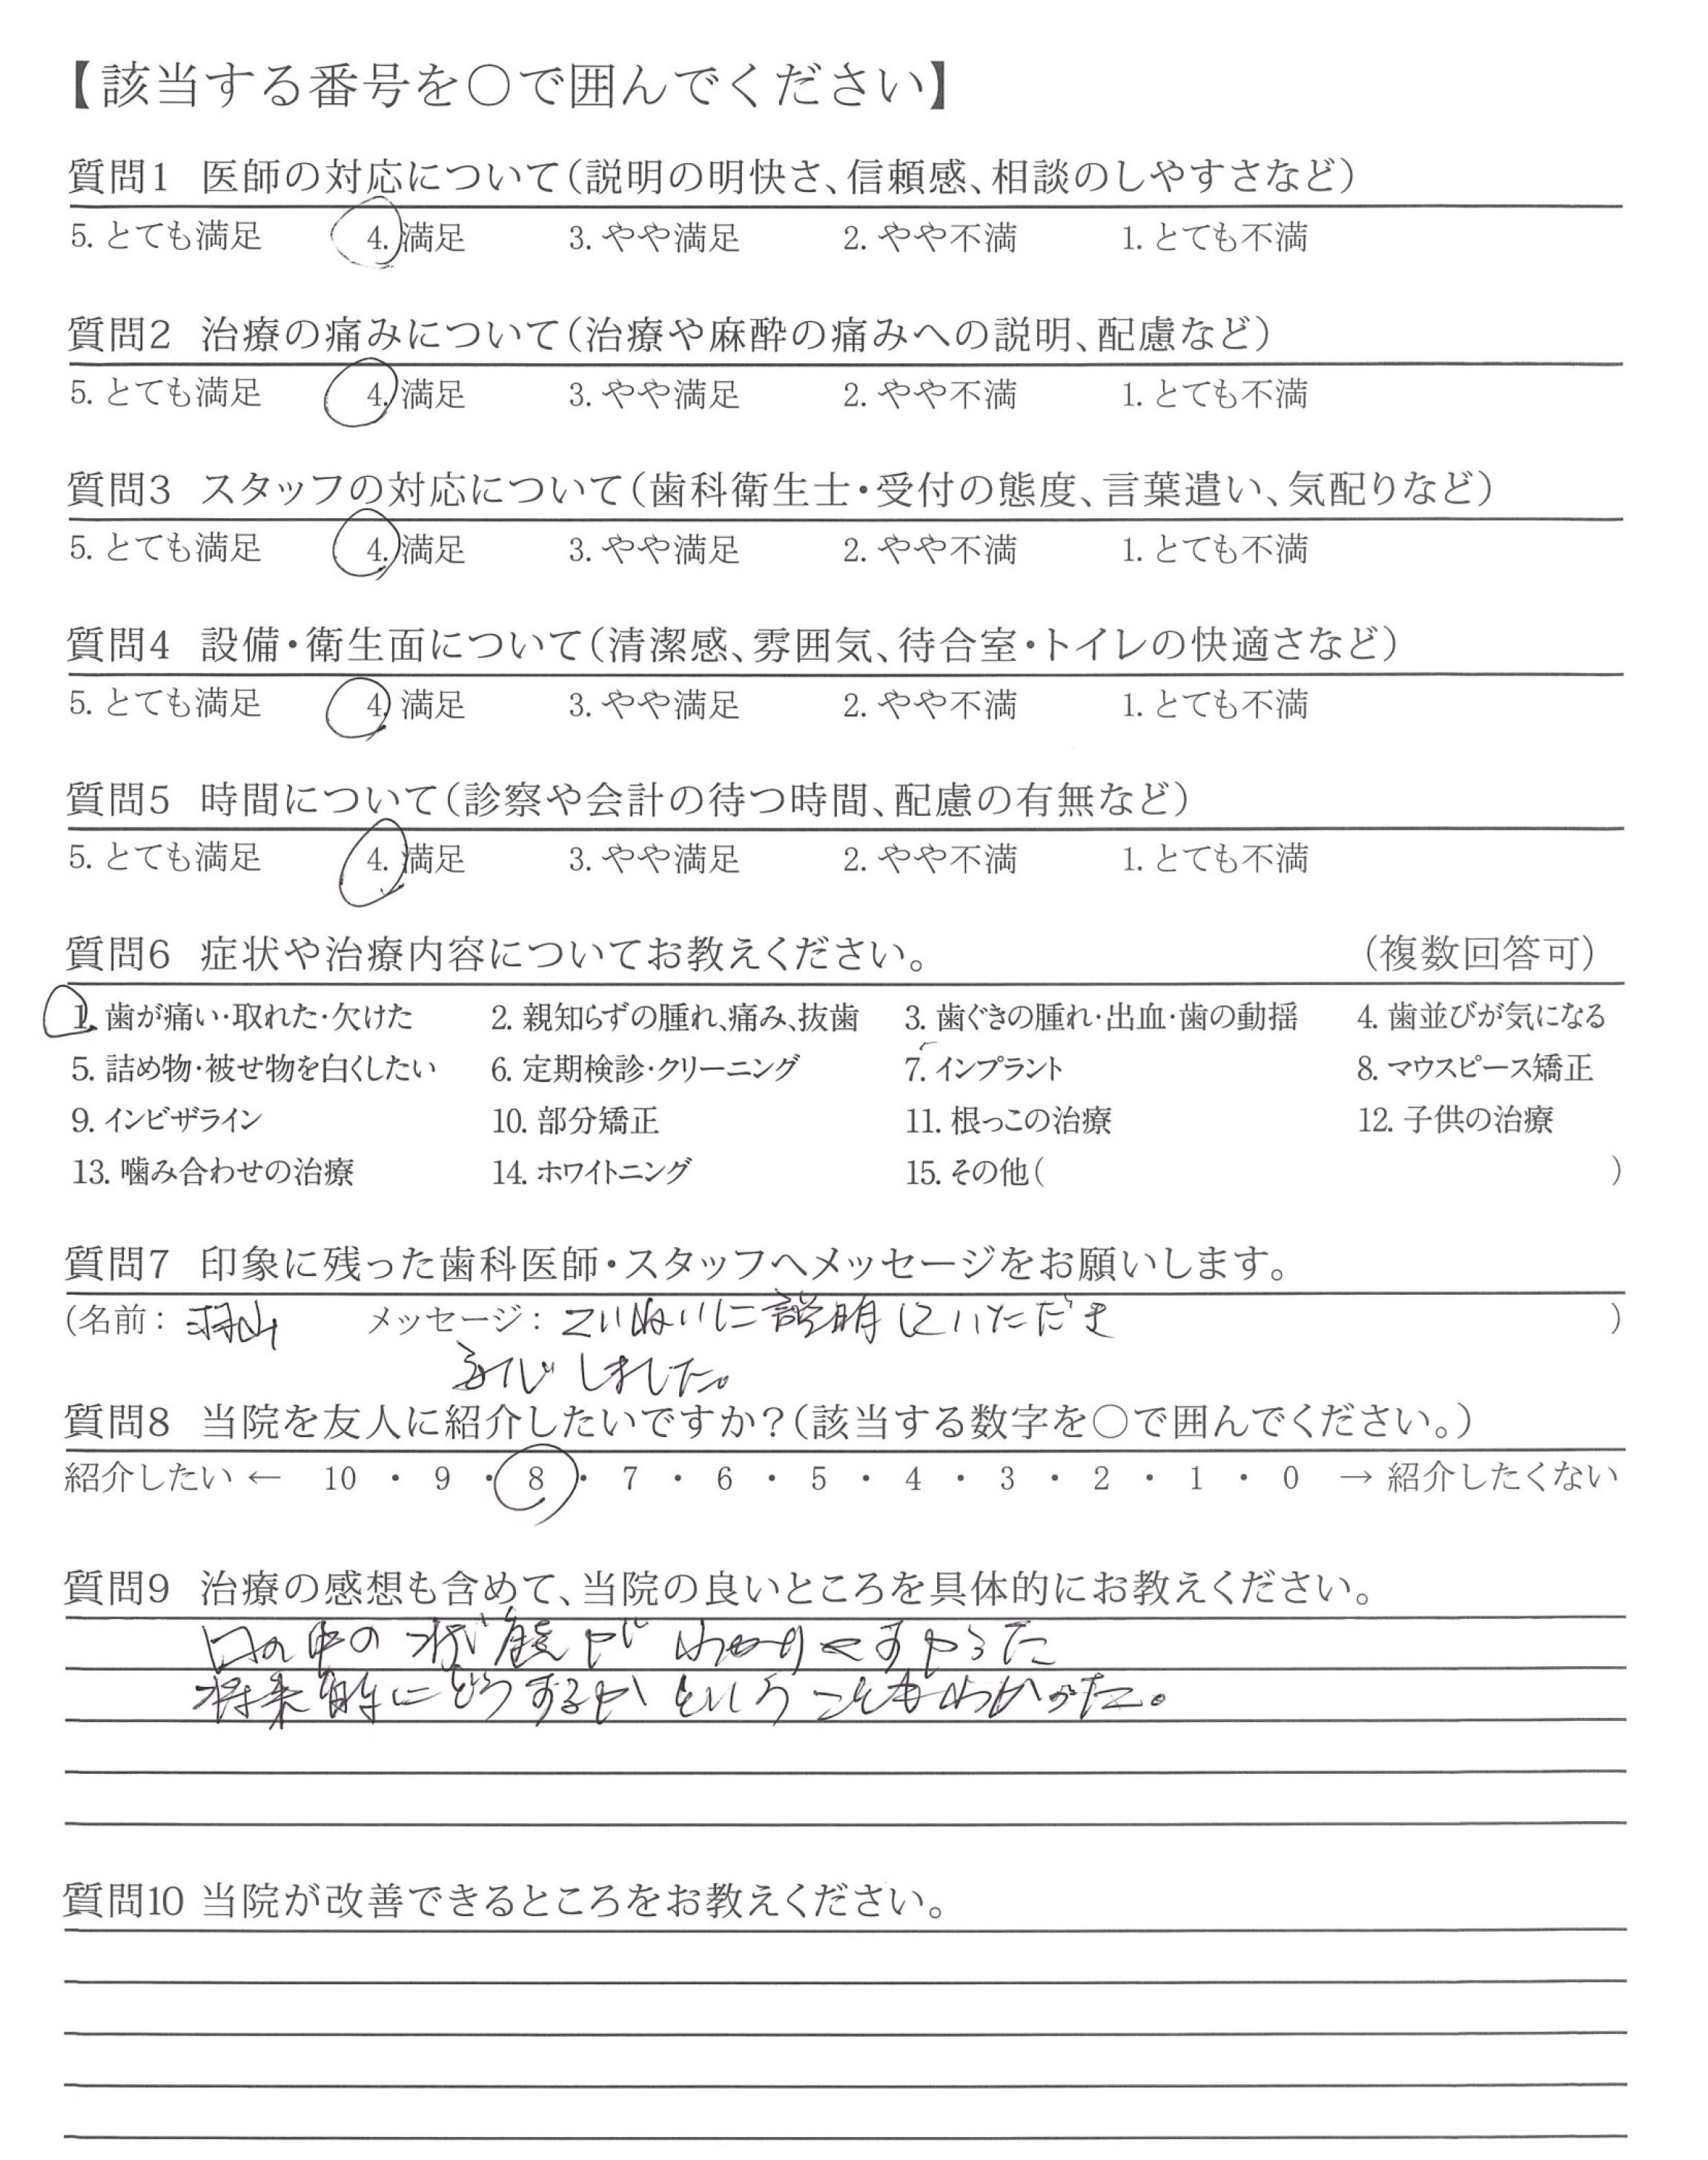 【該当する番号を○で囲んでください】
質問1 医師の対応について(説明の明快さ、信頼感、相談のしやすさなど)
5. とても満足 4. 満足 3. やや満足 2. やや不満 1. とても不満
質問2 治療の痛みについて(治療や麻酔の痛みへの説明、配慮など)
5. とても満足 4. 満足 3. やや満足 2. やや不満 1. とても不満
質問3 スタッフの対応について(歯科衛生士・受付の態度、言葉遣い、気配りなど)
5. とても満足 4. 満足 3. やや満足 2. やや不満 1. とても不満
質問4 設備・衛生面について(清潔感、雰囲気、待合室・トイレの快適さなど)
5. とても満足 4. 満足 3. やや満足 2. やや不満 1. とても不満
質問5 時間について(診察や会計の待つ時間、配慮の有無など)
5. とても満足 4. 満足 3. やや満足 2. やや不満 1. とても不満
質問6 症状や治療内容についてお教えください。 (複数回答可)
1. 歯が痛い・取れた・欠けた 2. 親知らずの腫れ、痛み、抜歯 3. 歯ぐきの腫れ・出血・歯の動揺 4. 歯並びが気になる
5. 詰め物・被せ物を白くしたい 6. 定期検診・クリーニング 7. インプラント 8. マウスピース矯正
9. インビザライン 10. 部分矯正 11. 根っこの治療 12. 子供の治療
13. 噛み合わせの治療 14. ホワイトニング 15. その他( )
質問7 印象に残った歯科医師・スタッフへメッセージをお願いします。
(名前: メッセージ: ていねいに説明していただき )
しました。
質問8 当院を友人に紹介したいですか?(該当する数字を○で囲んでください。)
紹介したい ← 10 ・ 9 ・ 8 ・ 7 ・ 6 ・ 5 ・ 4 ・ 3 ・ 2 ・ 1 ・ 0 → 紹介したくない
質問9 治療の感想も含めて、当院の良いところを具体的にお教えください。
口の中の状態がわかりやすかった
将来的にどうするかということもわかった。
質問10 当院が改善できるところをお教えください。